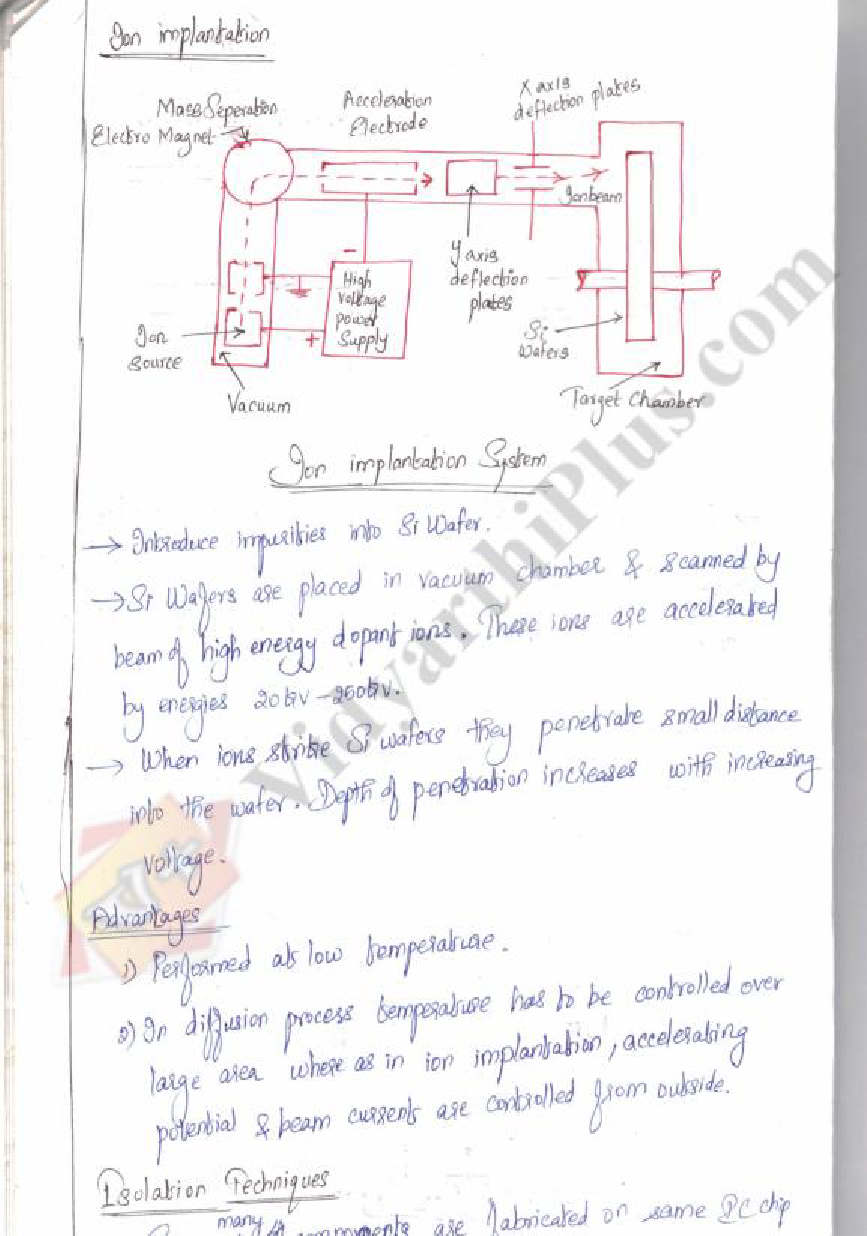 Ion implantation
Mass Seperation
Electro Magnet
Acceleration
Electrode
X axis
deflection plates
Ion beam
Y axis
deflection
plates
-
High
voltage
power
Supply
+
Ion
source
Vacuum
Si
Wafers
Target Chamber
Ion implantation System
→ Introduce impurities into Si Wafer.
→ Si Wafers are placed in vacuum chamber & scanned by
beam of high energy dopant ions. These ions are accelerated
by energies 20kv - 250kv.
→ When ions strike Si wafers they penetrate small distance
into the wafer. Depth of penetration increases with increasing
voltage.
Advantages
1) Performed at low temperature.
2) In diffusion process temperature has to be controlled over
large area where as in ion implantation, accelerating
potential & beam currents are controlled from outside.
Isolation Techniques
many
components are fabricated on same IC chip
VidyarthiPlus.com